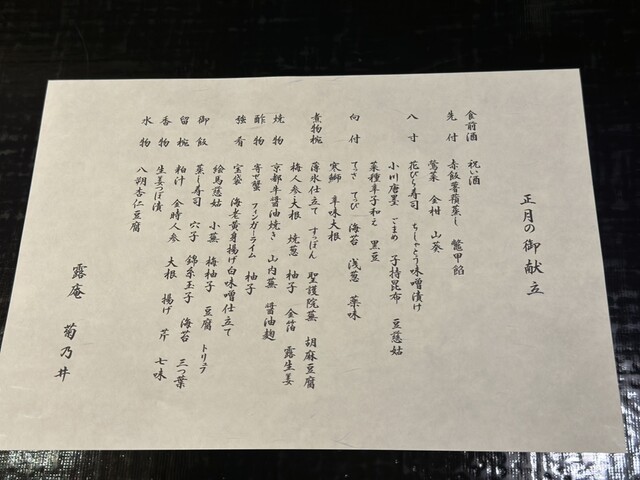 正月の御献立
食前酒 祝い酒
先付 赤飯薯蕷蒸し 鼈甲餡
鶯菜 金柑 山葵
八寸 花びら寿司 ちしゃとう味噌漬け
小川唐墨 ごまめ 子持昆布 豆慈姑
菜種辛子和え 黒豆
向付 てっさ てっぴ 海苔 浅葱 薬味
寒鰤 辛味大根
煮物椀 薄氷仕立て すっぽん 聖護院蕪 胡麻豆腐
梅人参大根 焼葱 柚子 金箔 露生姜
焼物 京都牛醤油焼き 山内蕪 醤油麹
酢物 寄せ蟹 フィンガーライム 柚子
強肴 宝袋 海老黄身揚げ白味噌仕立て
絵馬慈姑 小蕪 梅柚子 豆腐 トリュフ
御飯 蒸し寿司 穴子 錦糸玉子 海苔 三つ葉
留椀 粕汁 金時人参 大根 揚げ 芹 七味
香物 生姜つぼ漬
水物 八朔杏仁豆腐
露庵 菊乃井